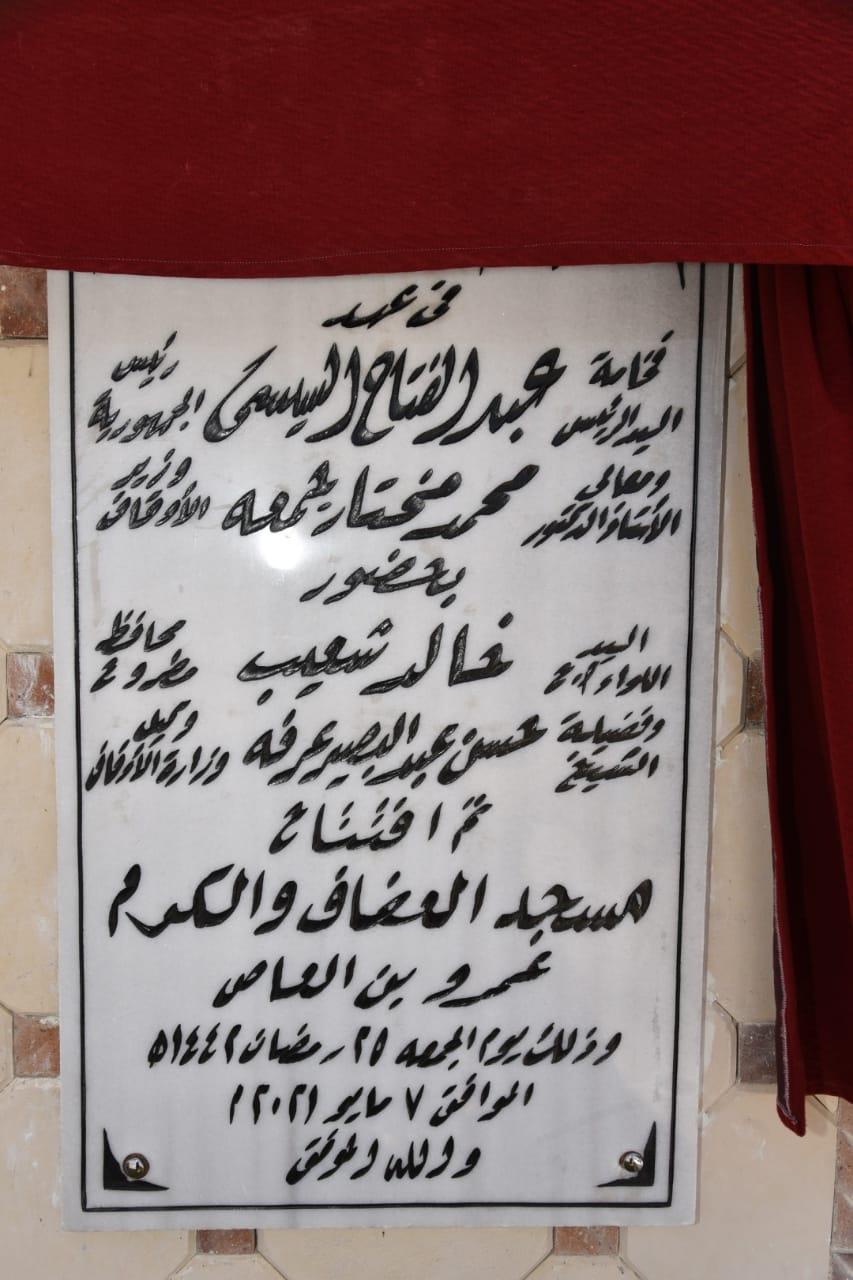 فى عهد
فخامة السيد الرئيس عبد الفتاح السيسى رئيس الجمهورية
ومعالى الأستاذ الدكتور محمد مختار جمعه وزير الأوقاف
بحضور
السيد اللواء أ.ح خالد شعيب محافظ مطروح
وفضيلة الشيخ حسن عبد البصير عرفه وكيل وزارة الأوقاف
تم افتتاح
مسجد العفاف والكرم
عمرو بن العاص
وذلك يوم الجمعه ٢٥ رمضان ١٤٤٢ ه
الموافق ٧ مايو ٢٠٢١ م
والله الموفق